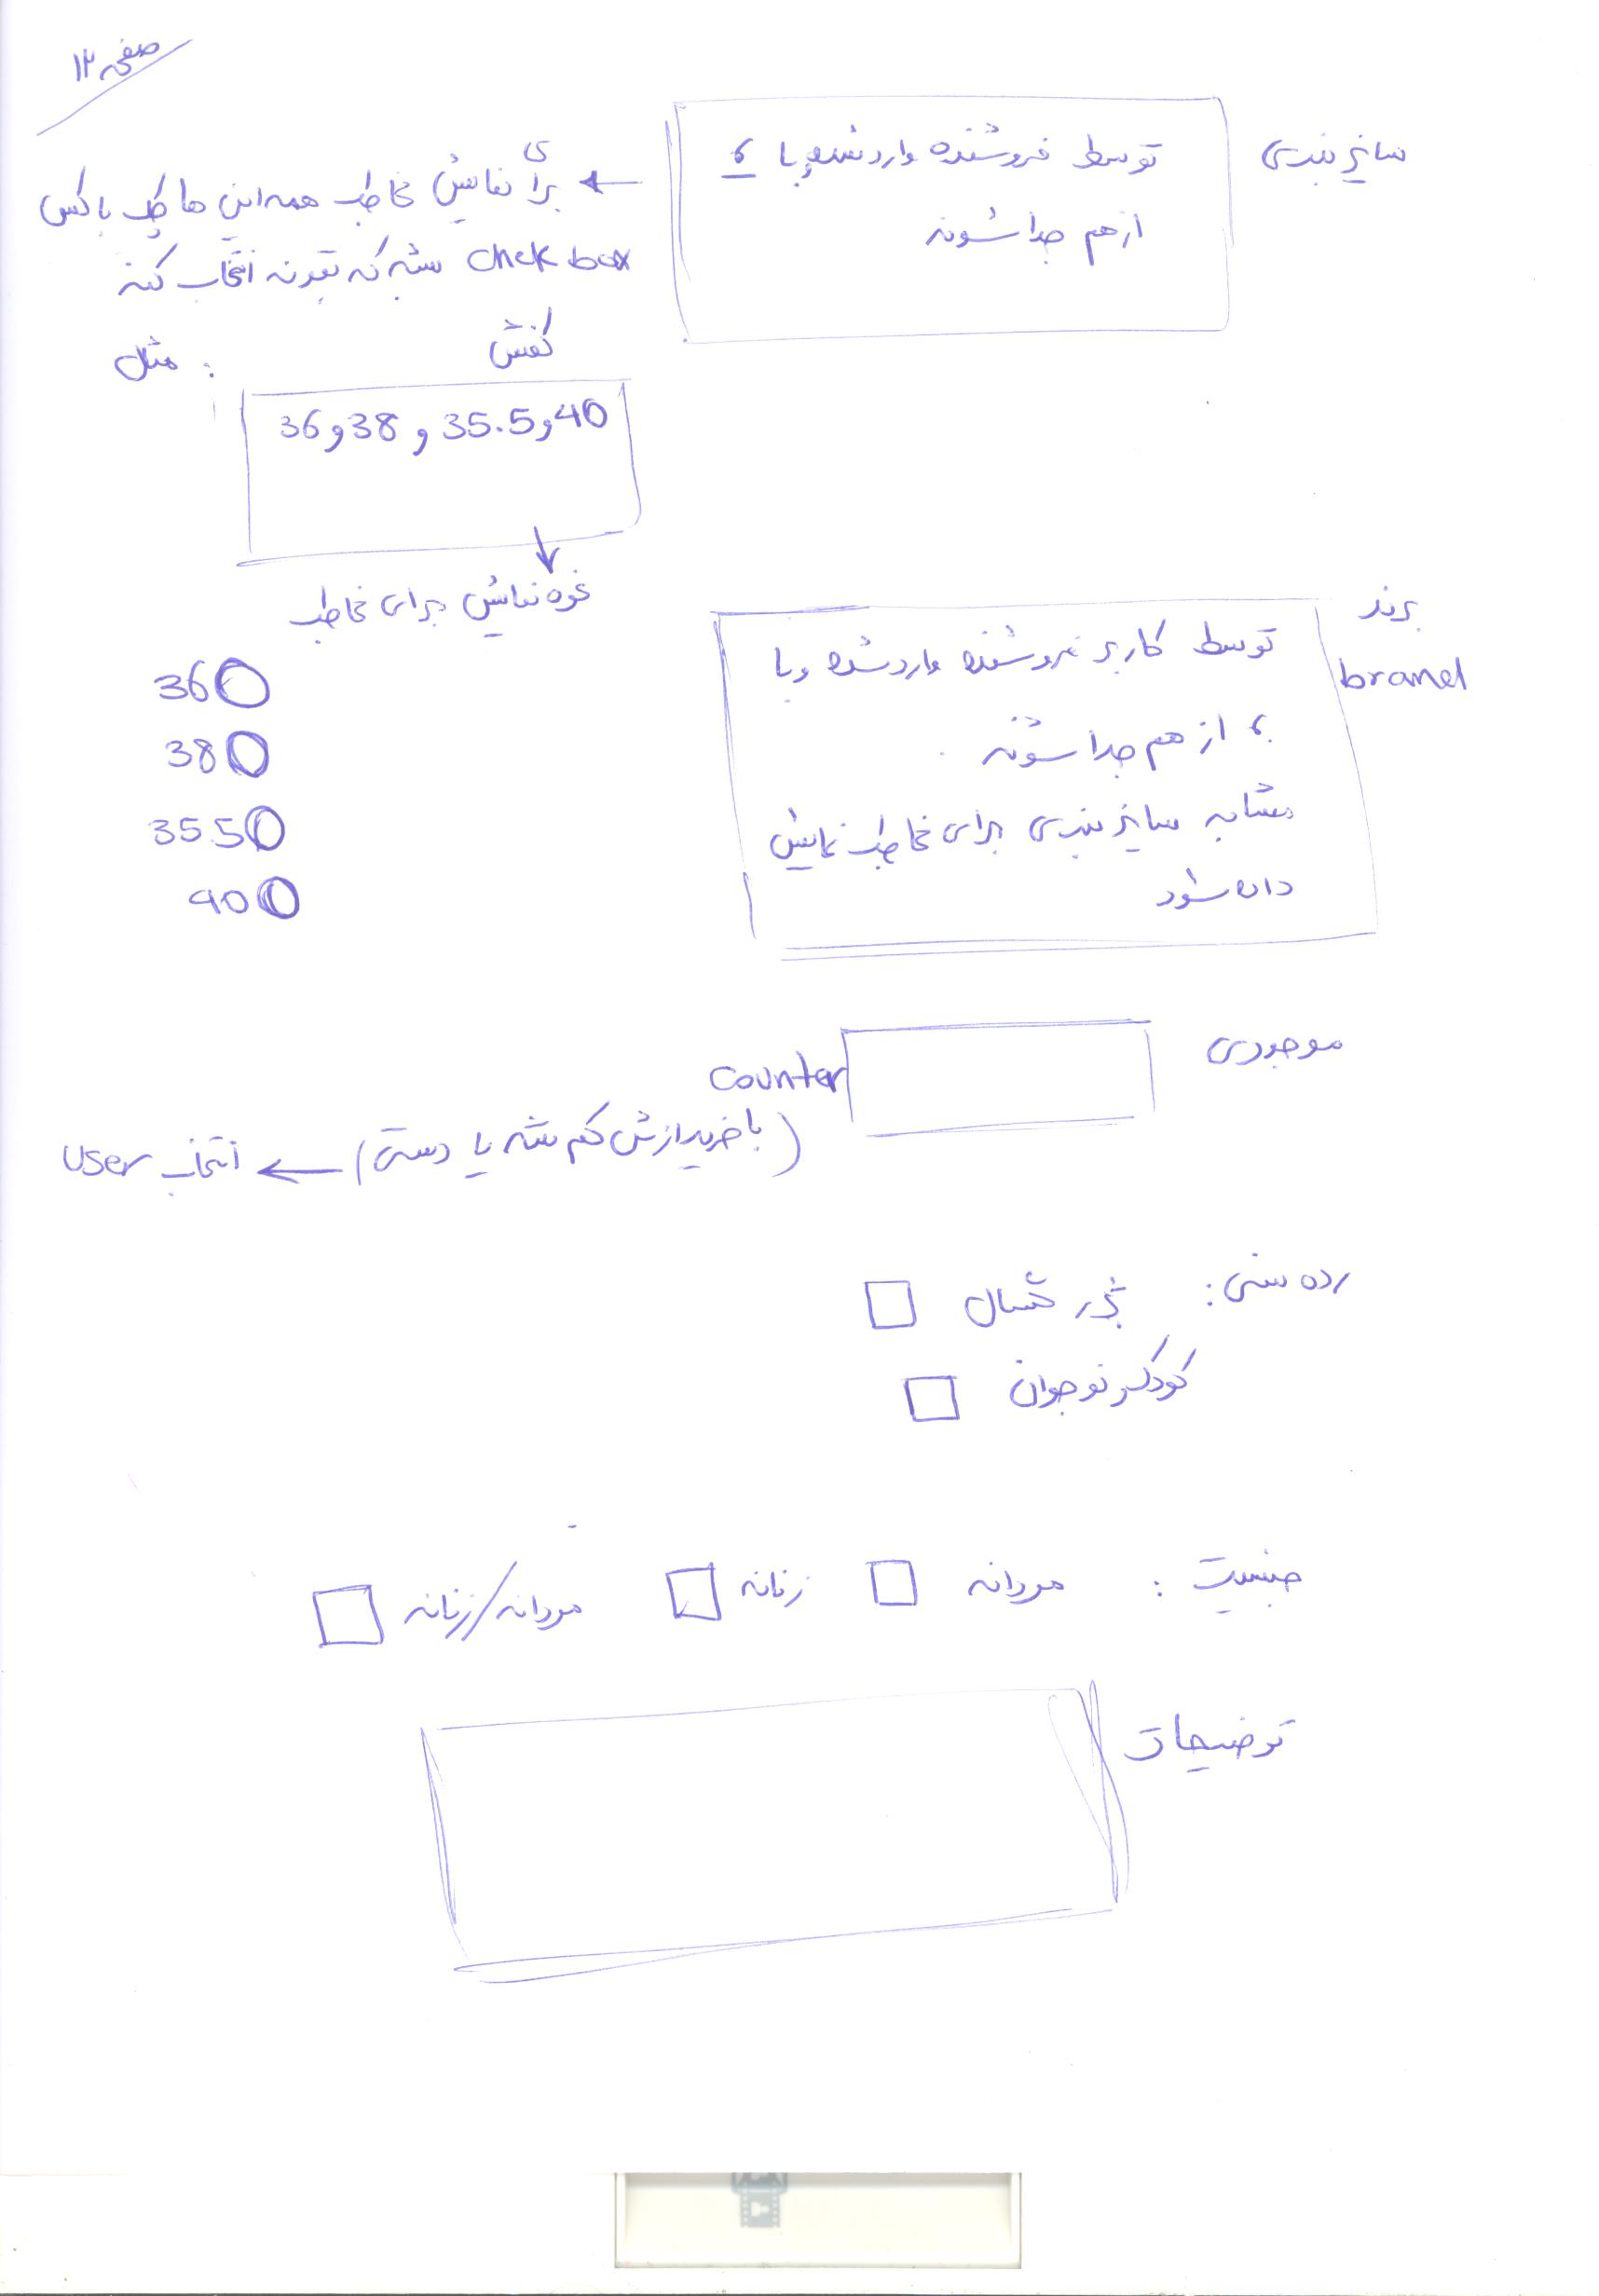 صفحه ۱۲
سایز بندی
توسط فروشنده وارد شده و با ،
از هم جدا شوند
برای نمایش مخاطب همه این ها چک باکس
chek box بشه که بتونه انتخاب کنه
مثل :
کفش
36 و 38 و 35.5 و 40
نحوه نمایش برای مخاطب
36
38
35.5
40
برند
brand
توسط کاربر فروشنده وارد شده و با
، از هم جدا شوند
مشابه سایز بندی برای مخاطب نمایش
داده شود
موجودی
counter
(با خرید ازش کم بشه یا دستی) ← انتخاب user
رده سنی :
بزرگسال
کودک و نوجوان
جنسیت : مردانه زنانه مردانه/زنانه
توضیحات